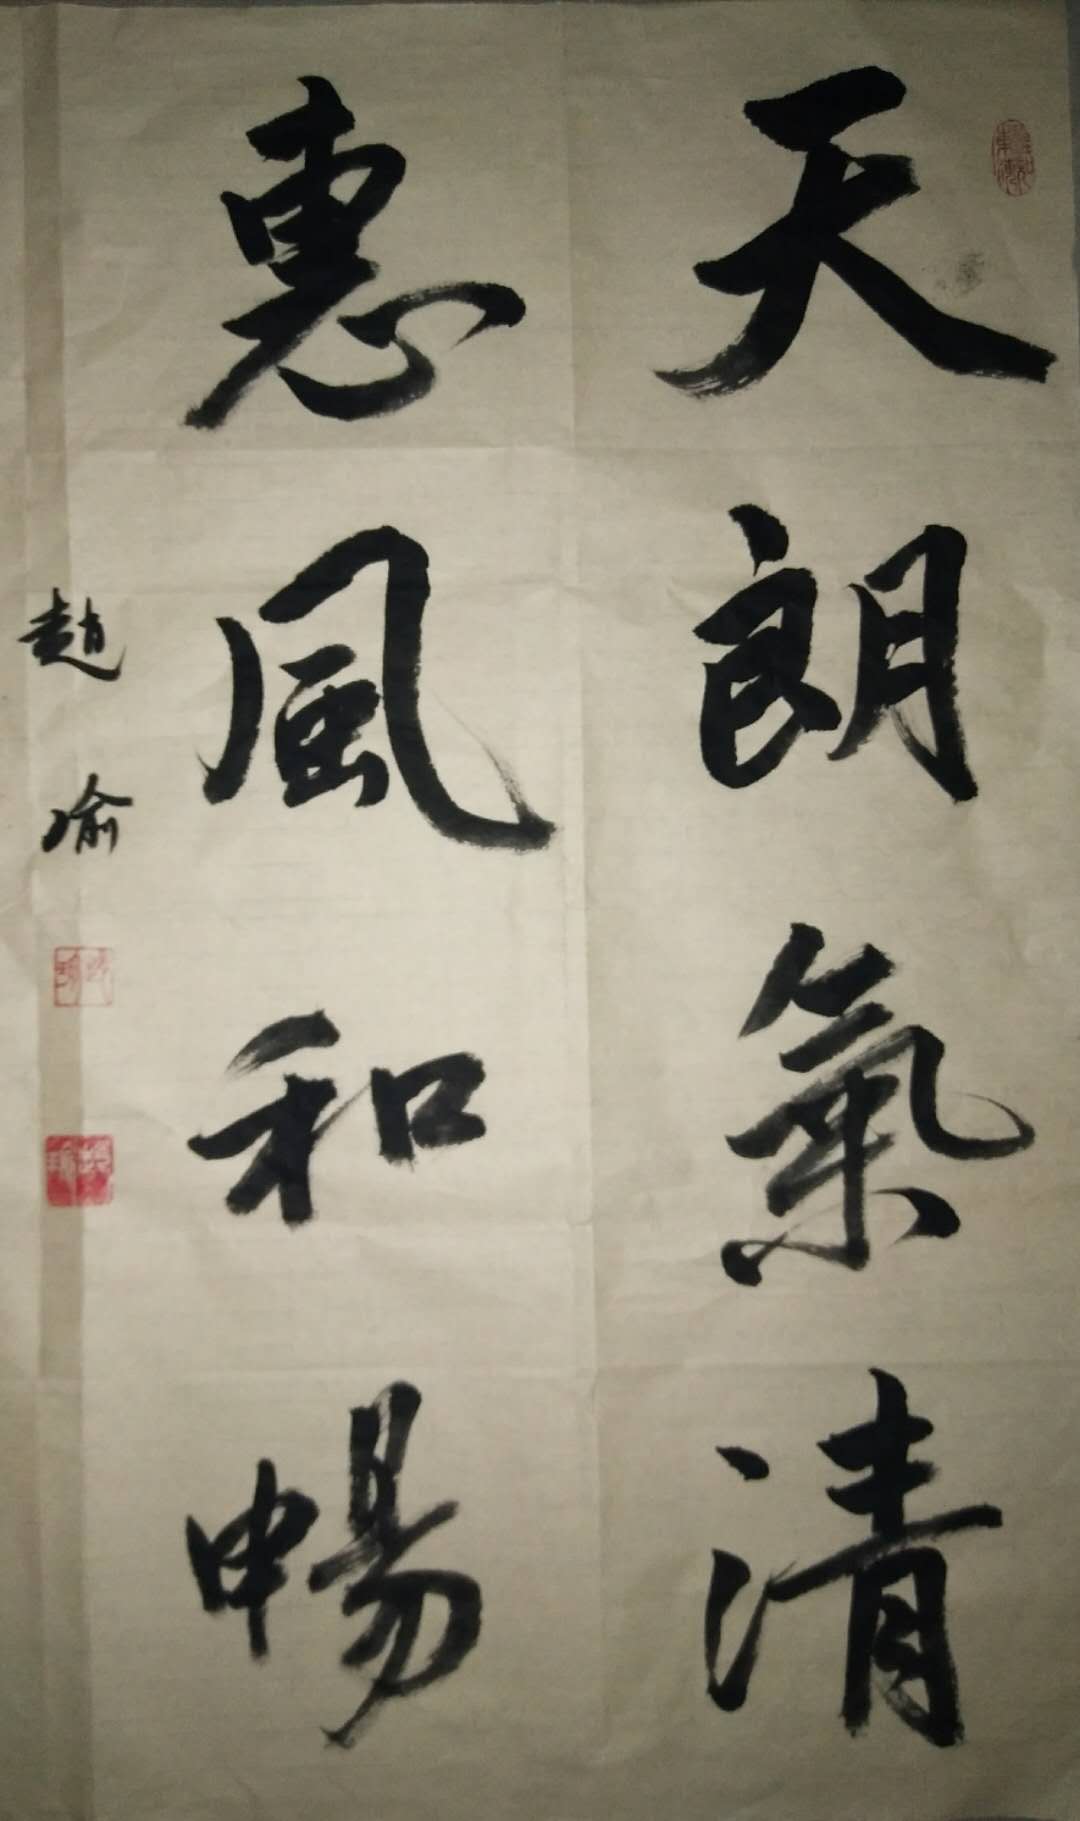 天朗氣清
惠風和暢
趙瑜